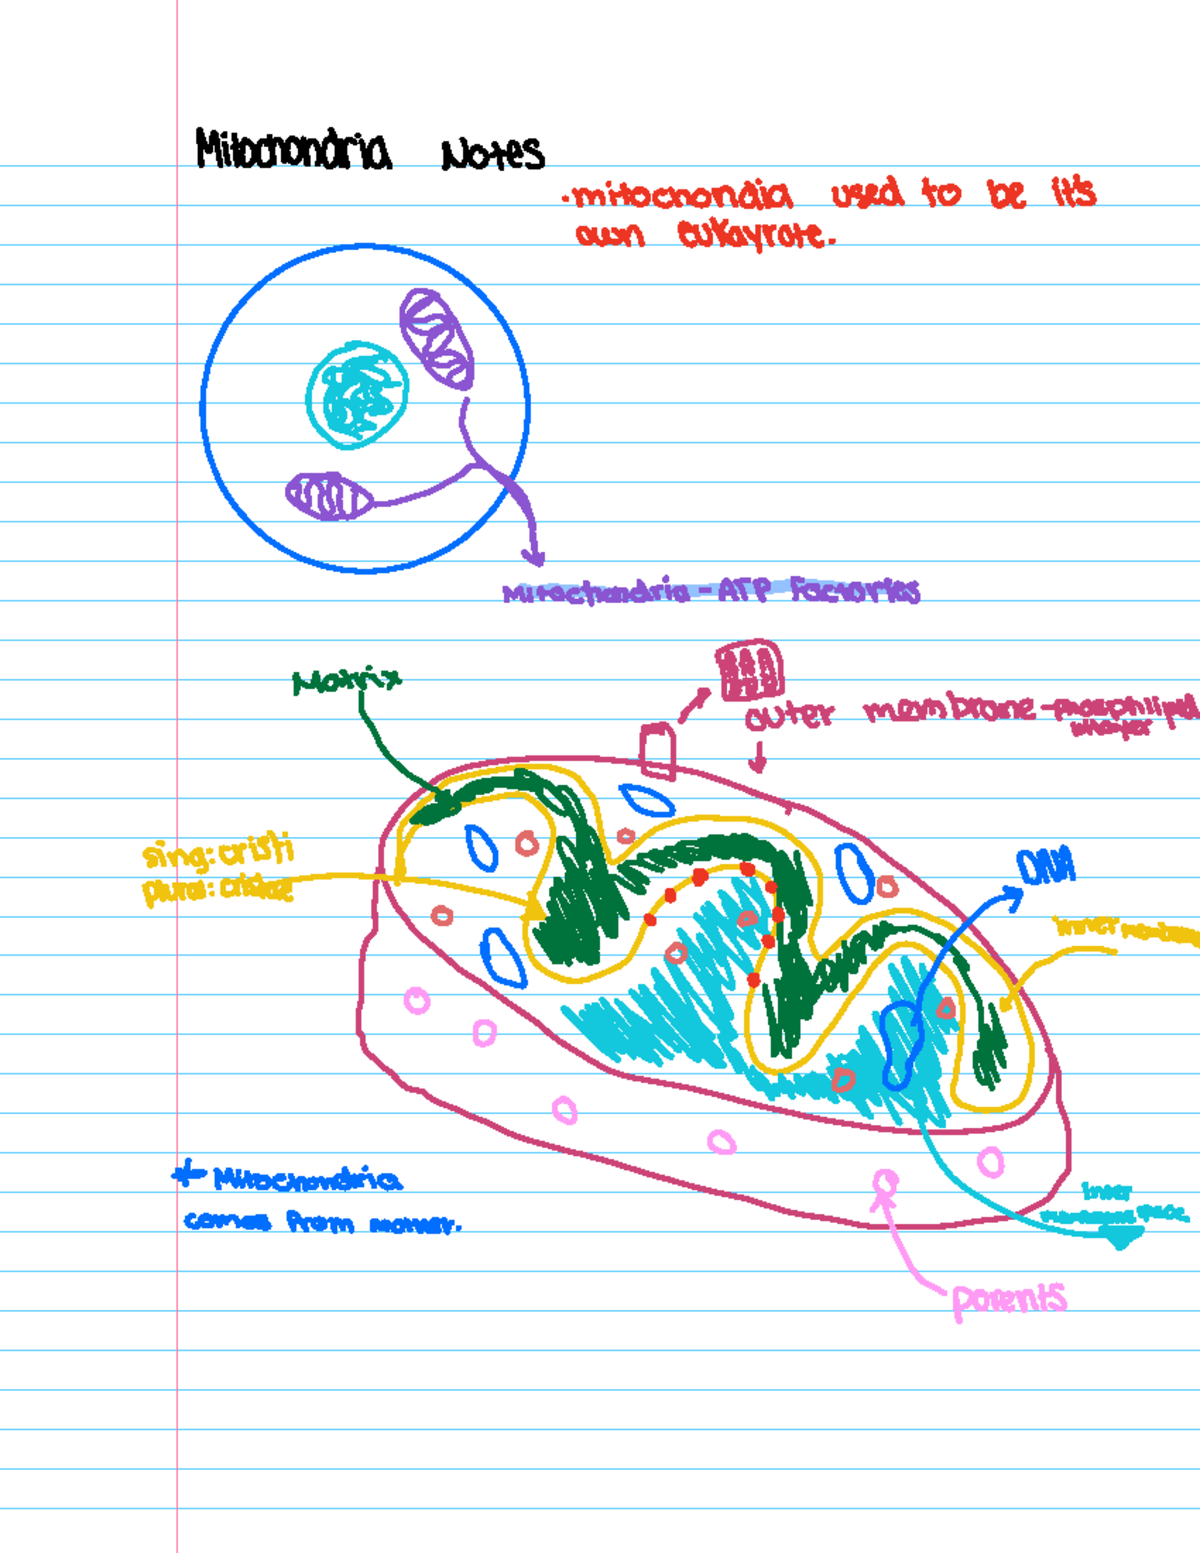 Mitochondria Notes
·mitochondia used to be it's
own eukayrote.
Mitochondria - ATP Factories
Matrix
outer membrane - phosphilipid
bilayer
sing: cristi
plural: cristae
DNA
inner membrane
* Mitochondria
comes from mother.
inner
membrane space
parents